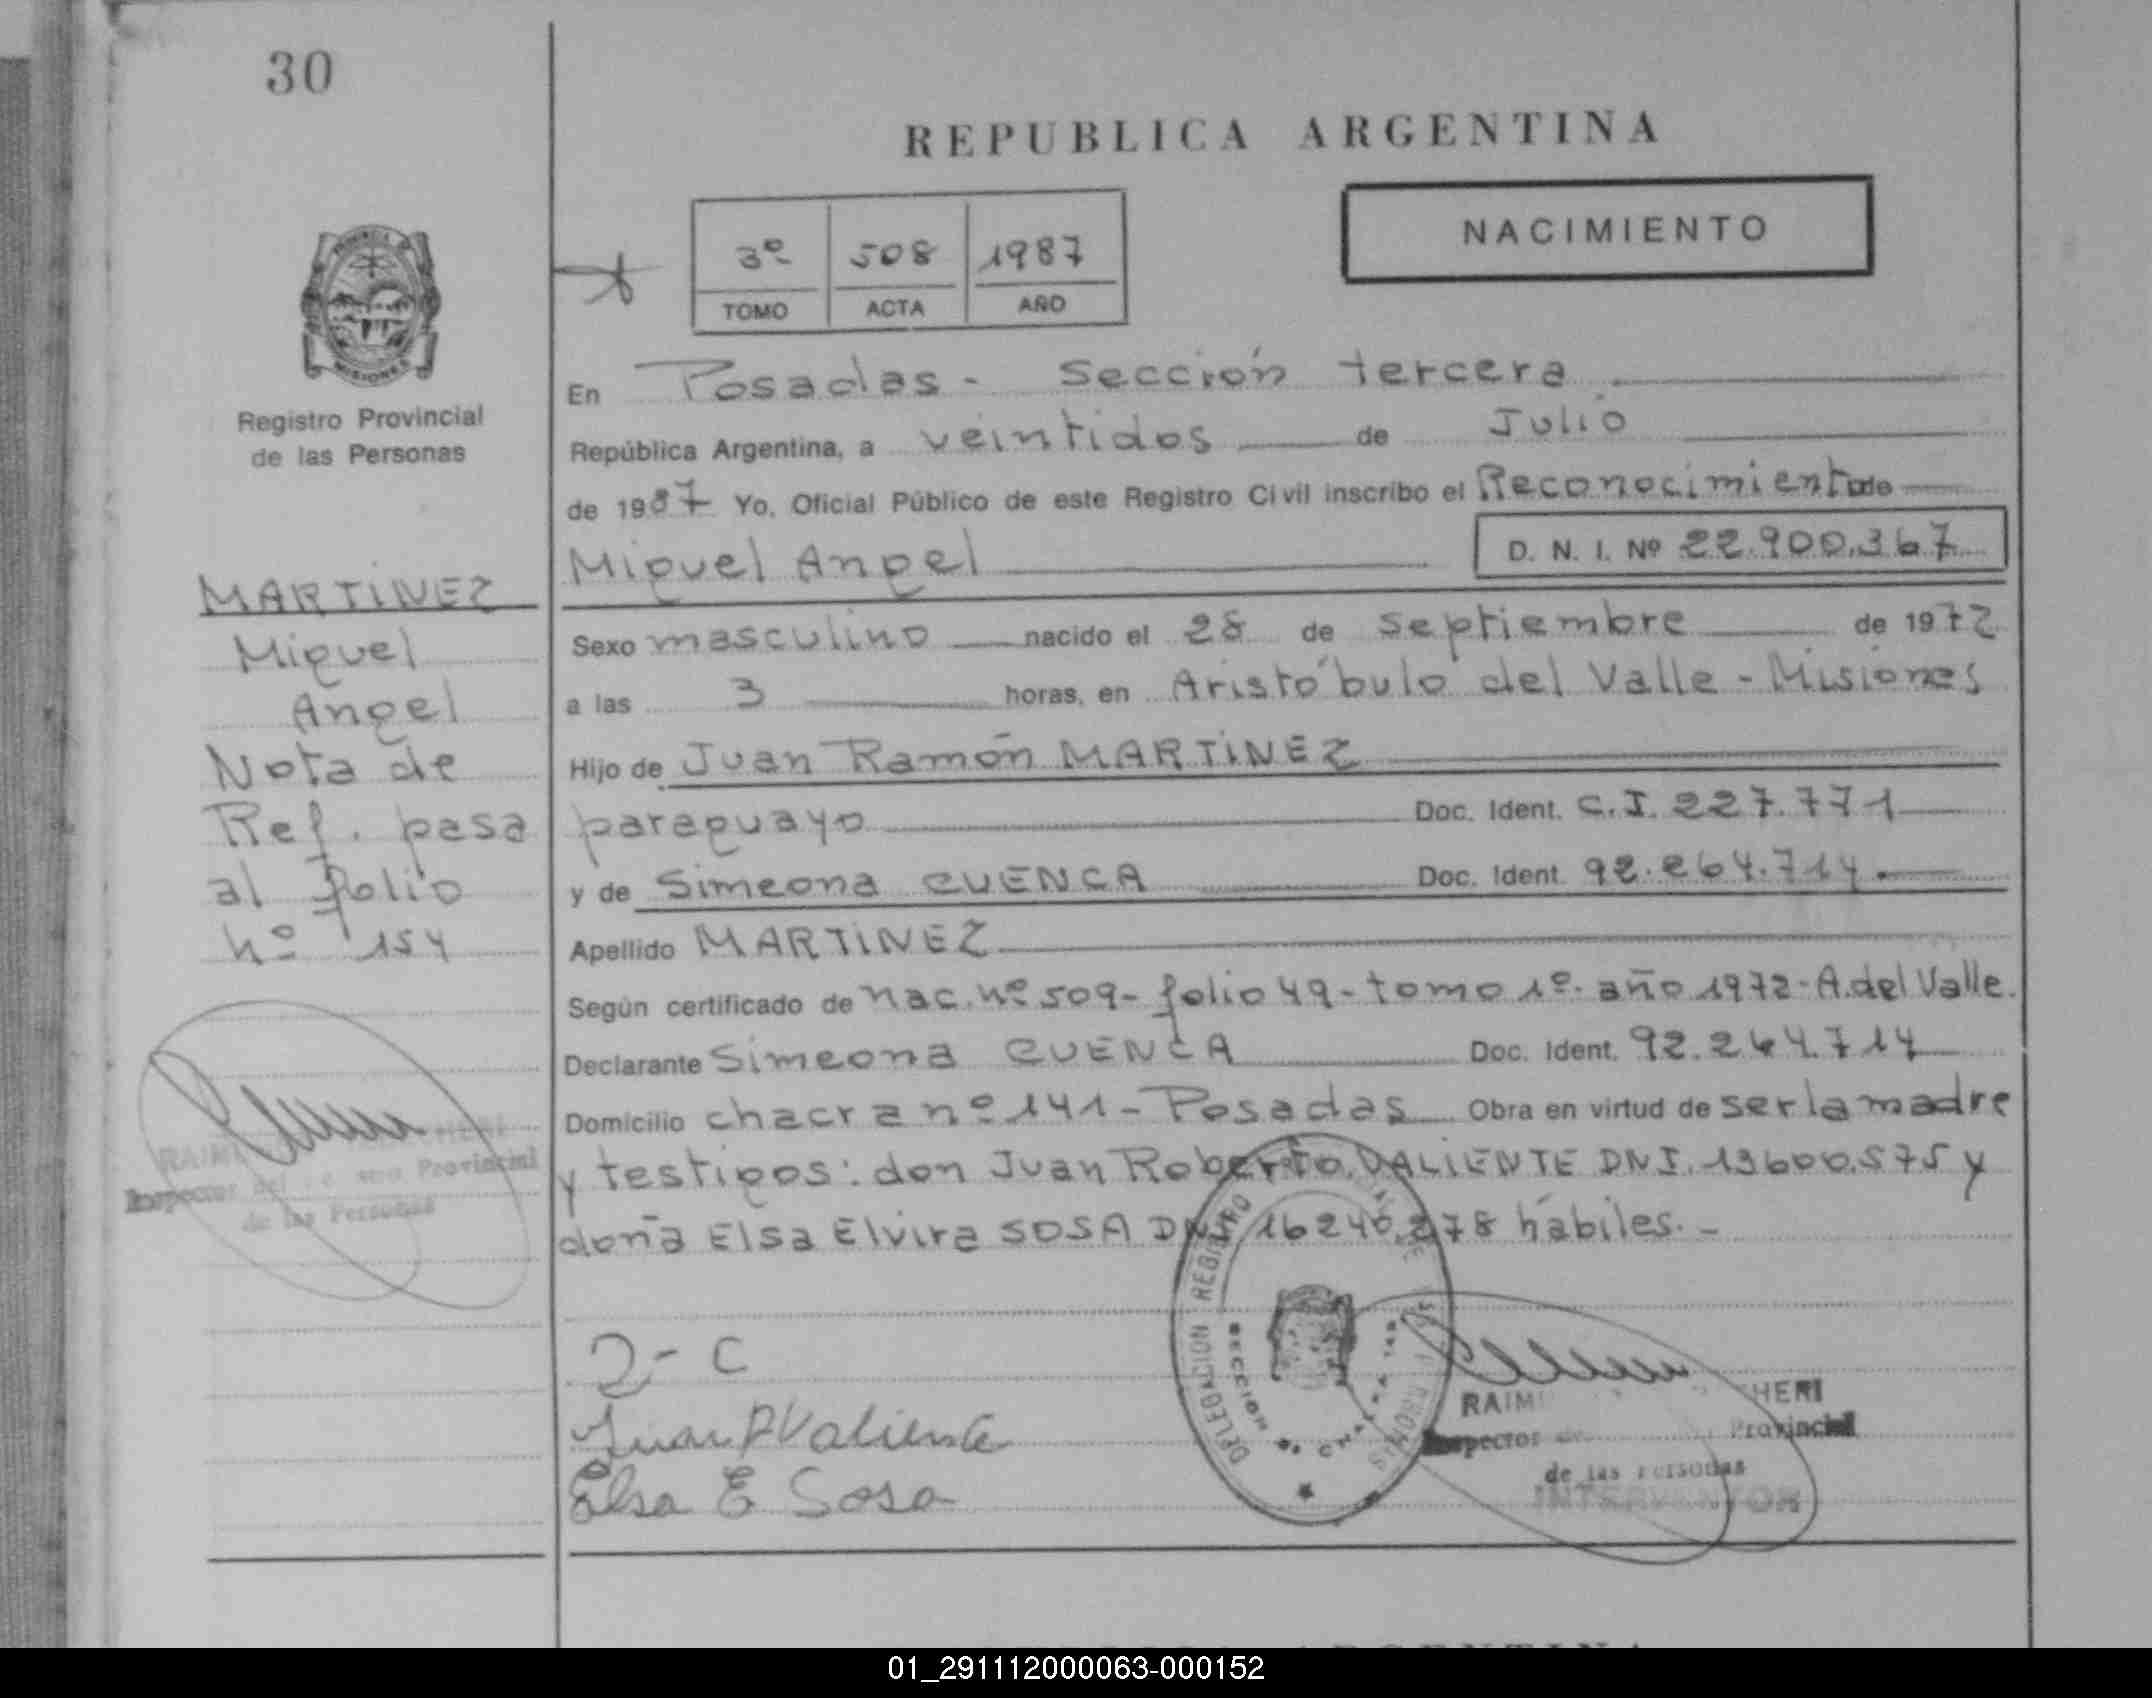 30
REPUBLICA ARGENTINA
NACIMIENTO
3º 508 1987
TOMO ACTA AÑO
MISIONES
Registro Provincial
de las Personas
En Posadas - Sección tercera
República Argentina, a veintidos de Julio
de 1987 Yo, Oficial Público de este Registro Civil inscribo el Reconocimiento de
Miguel Angel D. N. I. Nº 22.900.367
MARTINEZ
Miguel
Angel
Nota de
Ref. pasa
al folio
nº 154
Sexo masculino nacido el 28 de septiembre de 1972
a las 3 horas, en Aristóbulo del Valle - Misiones
Hijo de Juan Ramón MARTINEZ
paraguayo Doc. Ident. C.I. 227.771
y de Simeona CUENCA Doc. Ident. 92.264.714.
Apellido MARTINEZ
Según certificado de nac. nº 509- folio 49- tomo 1º. año 1972- A.del Valle.
Declarante Simeona CUENCA Doc. Ident. 92.264.714
Domicilio chacra nº 141- Posadas Obra en virtud de ser la madre
y testigos: don Juan Roberto VALIENTE DNI. 13600.575 y
doña Elsa Elvira SOSA DNI 16240.278 hábiles.-
Juan R Valiente
Elsa E Sosa
DELEGACION REGISTRO
SECCION
RAIM HERI
Inspector Provincial
de las Personas
INTERVENTOR
RAIM HERI
Inspector del Provincial
de las Personas
01_291112000063-000152